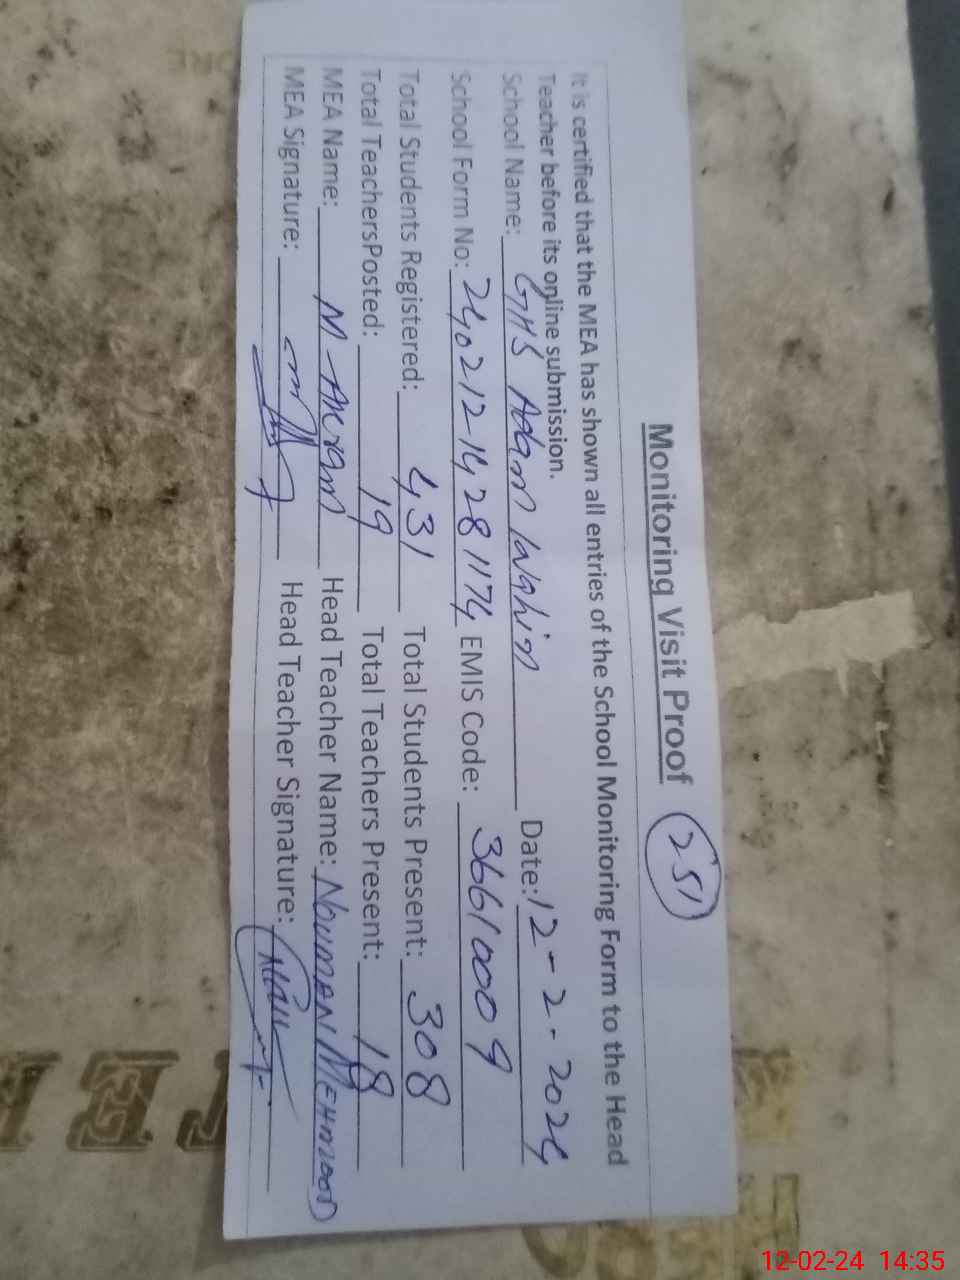 Monitoring Visit Proof 251
It is certified that the MEA has shown all entries of the School Monitoring Form to the Head
Teacher before its online submission.
School Name: GHS Adam Wahin Date: 12-2-2024
School Form No: 240212-1428 1174 EMIS Code: 36610009
Total Students Registered: 431 Total Students Present: 308
Total TeachersPosted: 19 Total Teachers Present: 18
MEA Name: M Akram Head Teacher Name: NOUMAN MEHMOOD
MEA Signature: Head Teacher Signature:
12-02-24 14:35